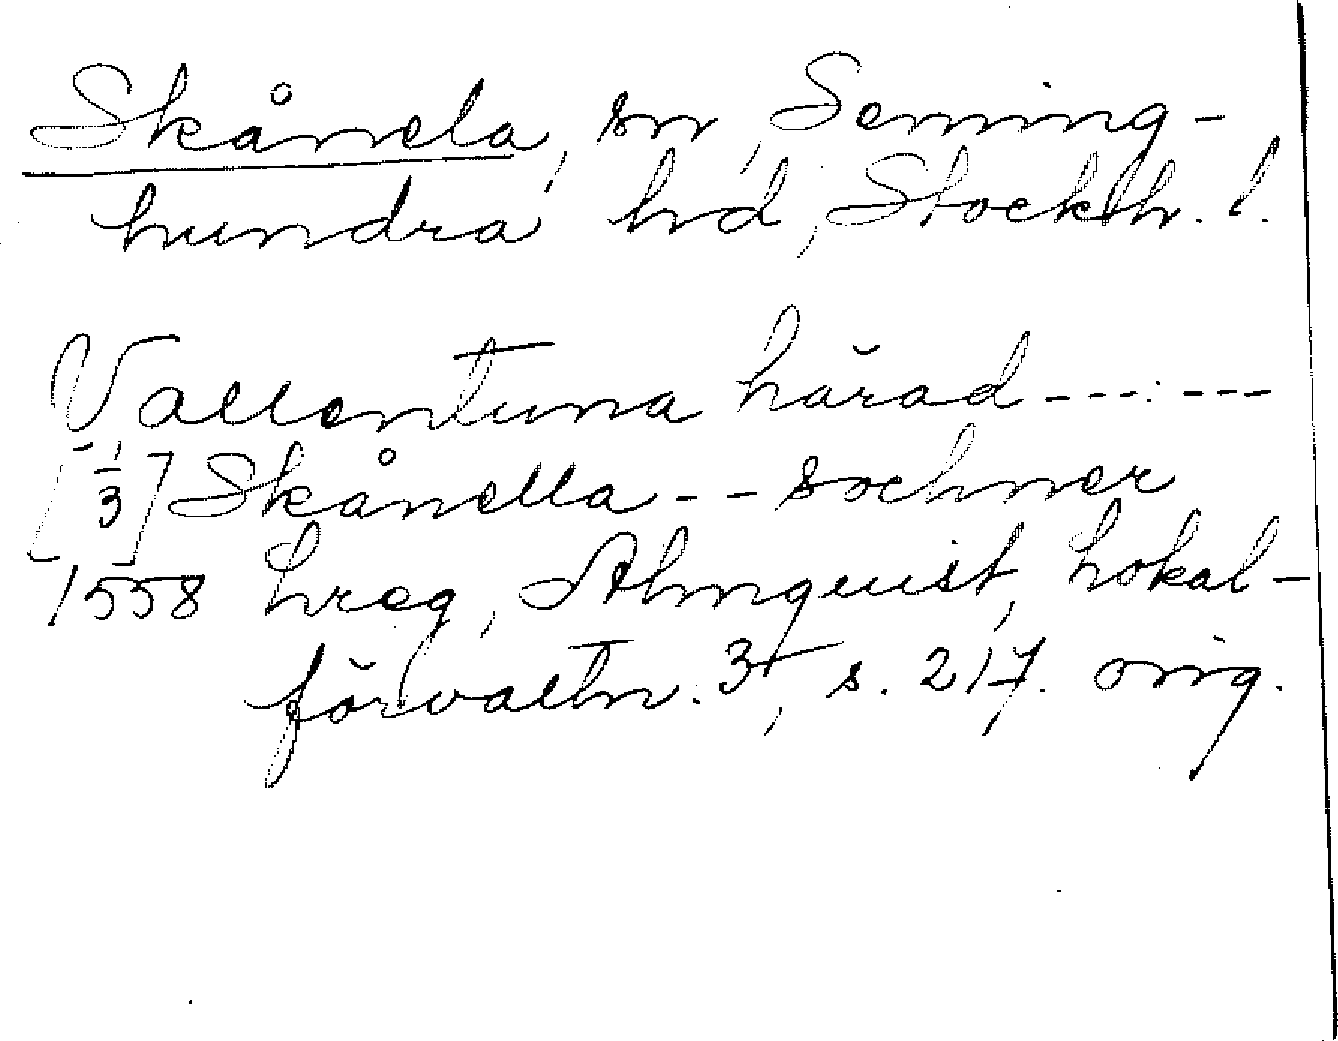 Skånela, sn, Seming-
hundra hd, Stockh. l.
Vallentuna härad - - - - - - -
[1/3] Skånella - - sochner
1558 hreg, Almquist, Lokal-
förvaltn. 3, s. 217. orig.